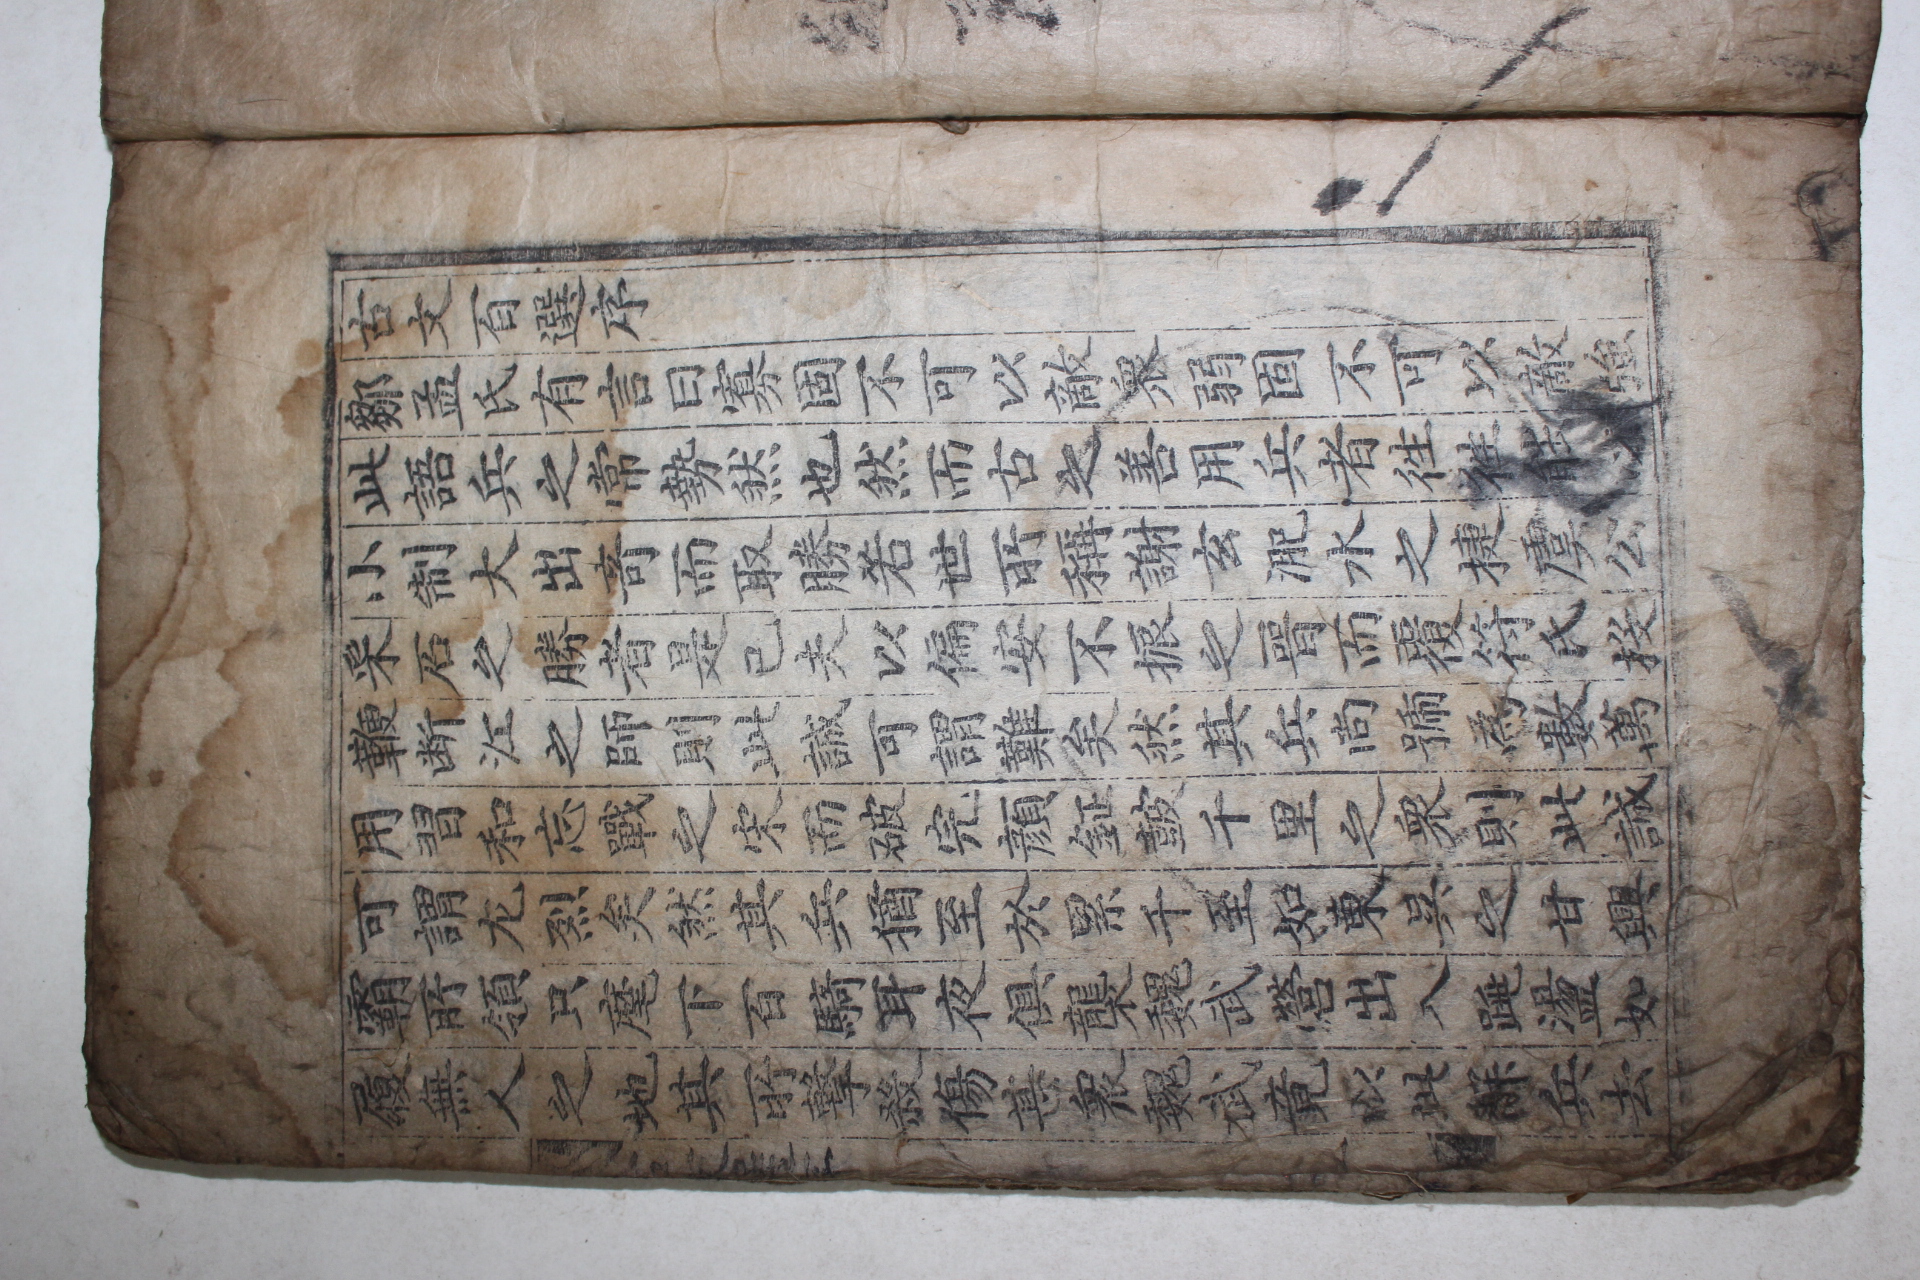 古文百選序
鄒孟氏有言曰寡固不可以敵衆弱固不可以敵強
此語兵之常勢然也然而古之善用兵者徃徃能以
小制大出奇而取勝若世所稱謝玄淝水之捷虞公
采石之勝者是已夫以偏安不振之晉而覆符氏投
鞭断江之師則此誠可謂難矣然其兵尚號為數萬
用習和忘戰之宋而破完顔鉦鼓千里之衆則此誠
可謂尤烈矣然其兵猶至於累千至如東吳之甘興
霸所領只麾下百騎耳夜俱襲魏武營出入踔盪如
履無人之地其所擊殺傷甚衆魏武竟以此觧兵去